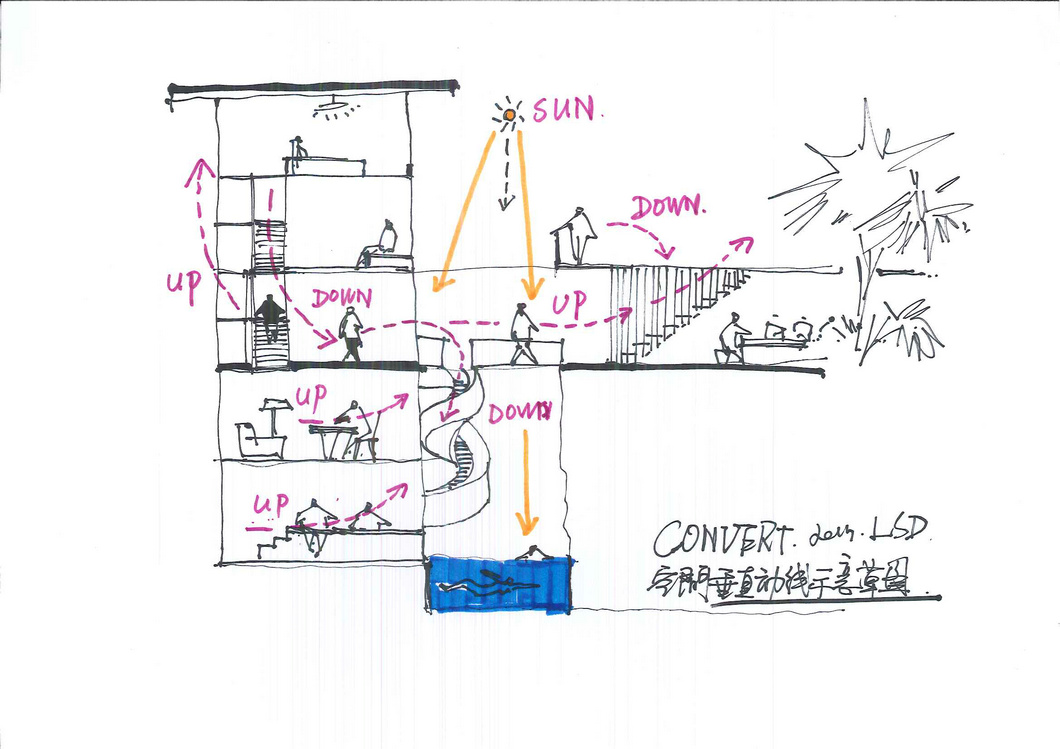 SUN.
DOWN.
UP
DOWN
UP
UP
DOWN
UP
CONVERT. des. LSD.
空間垂直动线示意草图.